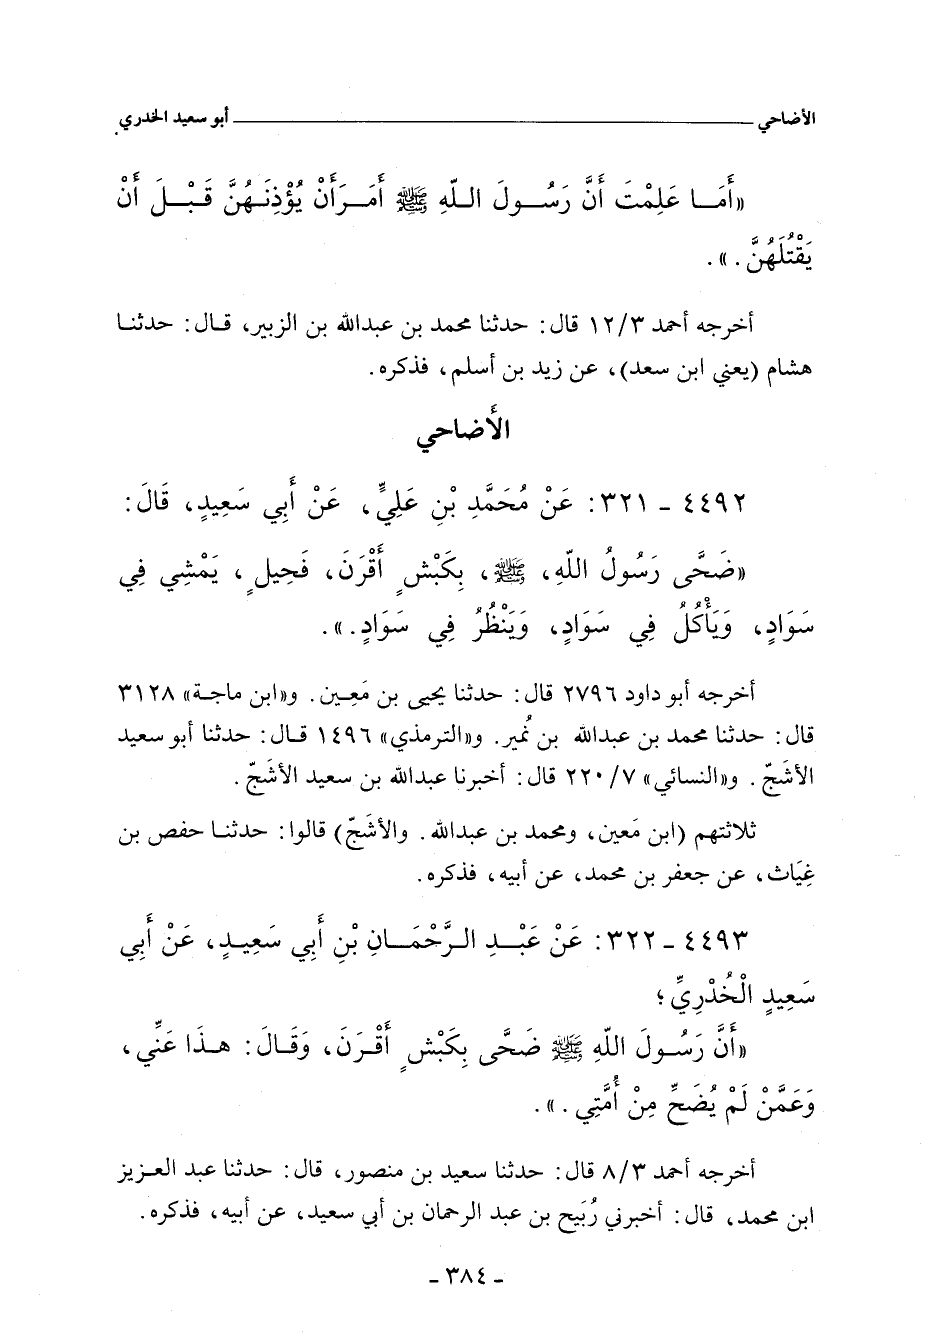 الأضاحي ــــــــــــــــــــ أبو سعيد الخدري
«أَمَـا عَلِمْتَ أَنَّ رَسُـولَ اللّهِ ﷺ أَمَـرَ أَنْ يُؤْذِنَـهُنَّ قَبْـلَ أَنْ
يَقْتُلَهُنَّ . » .
أخرجه أحمد ١٢/٣ قال : حدثنا محمد بن عبدالله بن الزبير، قـال : حدثنـا
هشام (يعني ابن سعد)، عن زيد بن أسلم، فذكره.
الأَضاحي
٤٤٩٢ - ٣٢١ : عَنْ مُحَمَّدِ بْنِ عَلِيٍّ، عَنْ أَبِي سَعِيدٍ، قَالَ :
«ضَحَّى رَسُولُ اللّهِ، ﷺ، بِكَبْشٍ أَقْرَنَ، فَحِيلٍ، يَمْشِي فِي
سَوَادٍ، وَيَأْكُلُ فِي سَوَادٍ، وَيَنْظُرُ فِي سَوَادٍ . » .
أخرجه أبو داود ٢٧٩٦ قال : حدثنا يحيى بن مَعِـين. و«ابن ماجـة» ٣١٢٨
قال : حدثنا محمد بن عبدالله بن نُمير. و«الترمذي» ١٤٩٦ قـال : حدثنا أبو سعيد
الأشَجّ . و«النسائي» ٢٢٠/٧ قال : أخبرنا عبدالله بن سعيد الأشَجّ .
ثلاثتهم (ابن مَعين، ومحمد بن عبدالله . والأشَجّ) قالوا : حدثنـا حفص بن
غِيَاث، عن جعفر بن محمد، عن أبيه، فذكره.
٤٤٩٣ - ٣٢٢ : عَنْ عَبْـدِ الـرَّحْمَـانِ بْنِ أَبِي سَعِيـدٍ، عَنْ أَبِي
سَعِيدٍ الْخُدْرِيِّ ؛
«أَنَّ رَسُـولَ اللّهِ ﷺ ضَحَّى بِكَبْشٍ أَقْـرَنَ، وَقَـالَ : هـذَا عَنِّي،
وَعَمَّنْ لَمْ يُضَحِّ مِنْ أُمَّتِي . » .
أخرجه أحمد ٨/٣ قال : حدثنا سعيد بن منصور، قال : حدثنا عبد العـزيز
ابن محمد، قال : أخبرني رُبَيح بن عبد الرحمان بن أبي سعيد، عن أبيه، فذكره.
- ٣٨٤ -